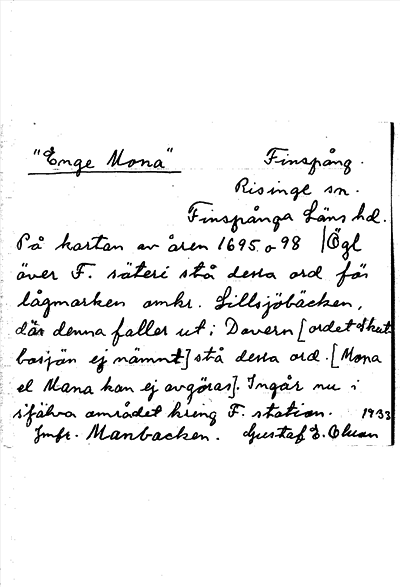 "Enge Mona" Finspång.
Risinge sn.
Finspånga Läns hd.
På kartan av åren 1695 o 98 Ögl
över F. säteri stå dessa ord för
lågmarken omkr. Lillsjöbäcken,
där denna faller ut i Dovern [ordet Skut
bosjön ej nämnt] stå dessa ord. [Mona
el Mana kan ej avgöras]. Ingår nu i
själva området kring F. station. 1933
Jmfr. Manbacken. Gustaf E. Olsson